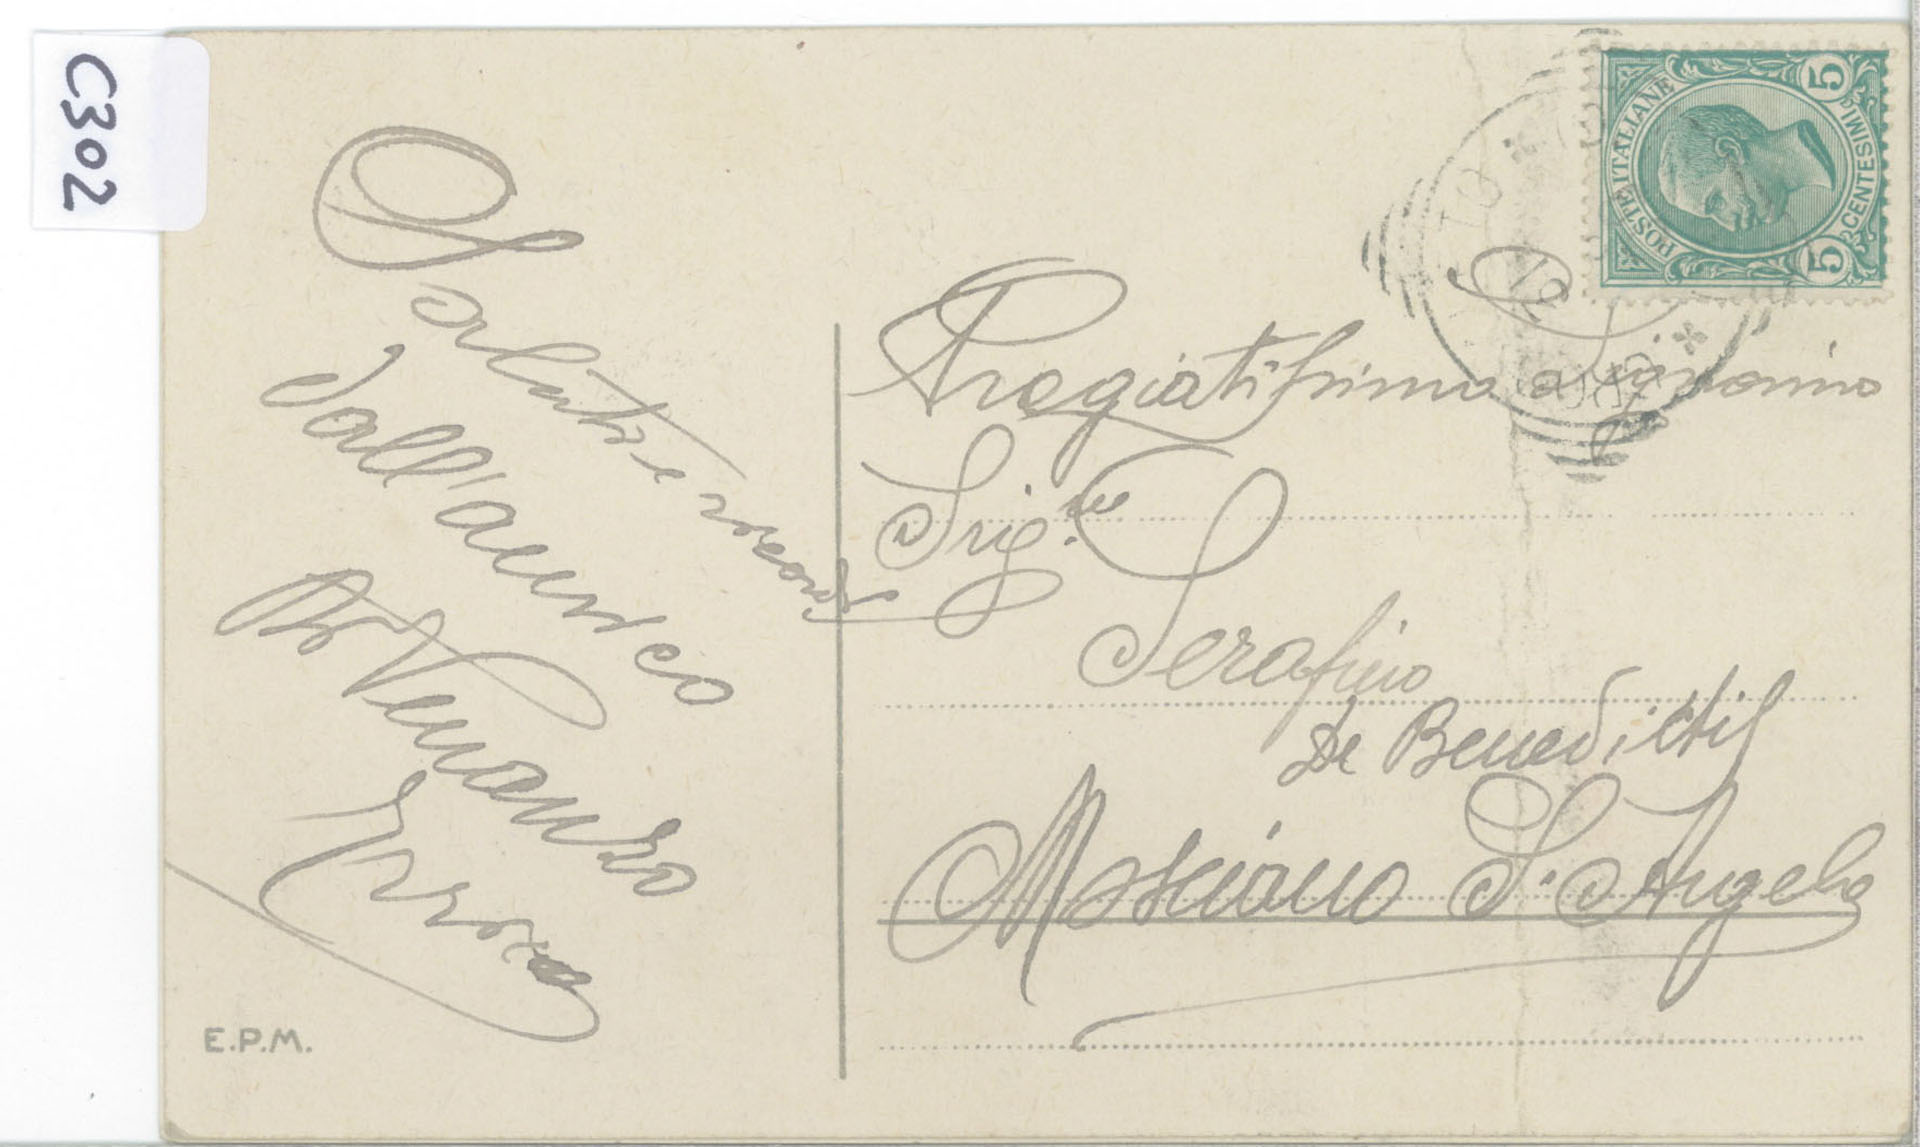 C302
Saluti e ricordi
dall'amico
Venanzo
E.P.M.
POSTE ITALIANE
5 CENTESIMI 5
Pregiatissimo
Sig.re
Serafino
De Benedictis
Mosciano S. Angelo